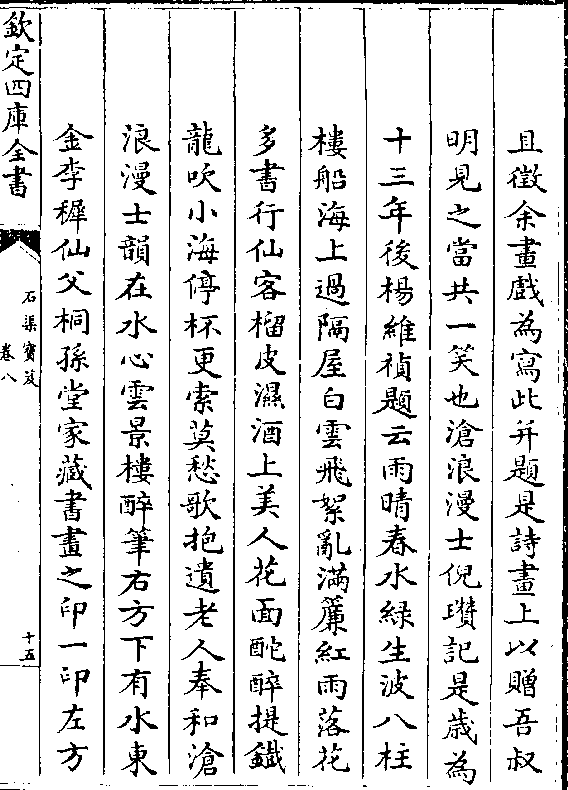 且徵余畫戲為寫此并題是詩畫上以贈吾叔
明見之當共一笑也滄浪漫士倪瓚記是歳為
十三年後楊維禎題云雨晴春水緑生波八柱
樓船海上過隔屋白雲飛絮亂滿簾紅雨落花
多書行仙客榴皮濕酒上美人花面酡醉提鐵
龍吹小海停杯更索莫愁歌抱遺老人奉和滄
浪漫士韻在水心雲景樓醉筆右方下有水東
金李穉仙父桐孫堂家藏書畫之印一印左方
欽定四庫全書
石渠寳笈
卷八
十五